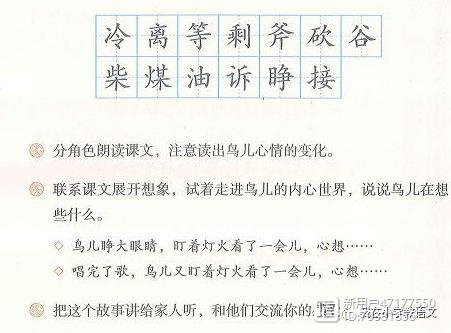 冷离等剩斧砍谷
柴煤油诉睁接
分角色朗读课文，注意读出鸟儿心情的变化。
联系课文展开想象，试着走进鸟儿的内心世界，说说鸟儿在想
些什么。
◇ 鸟儿睁大眼睛，盯着灯火看了一会儿，心想……
◇ 唱完了歌，鸟儿又盯着灯火看了一会儿，心想……
把这个故事讲给家人听，和他们交流你的
新用户47177550
小学语文